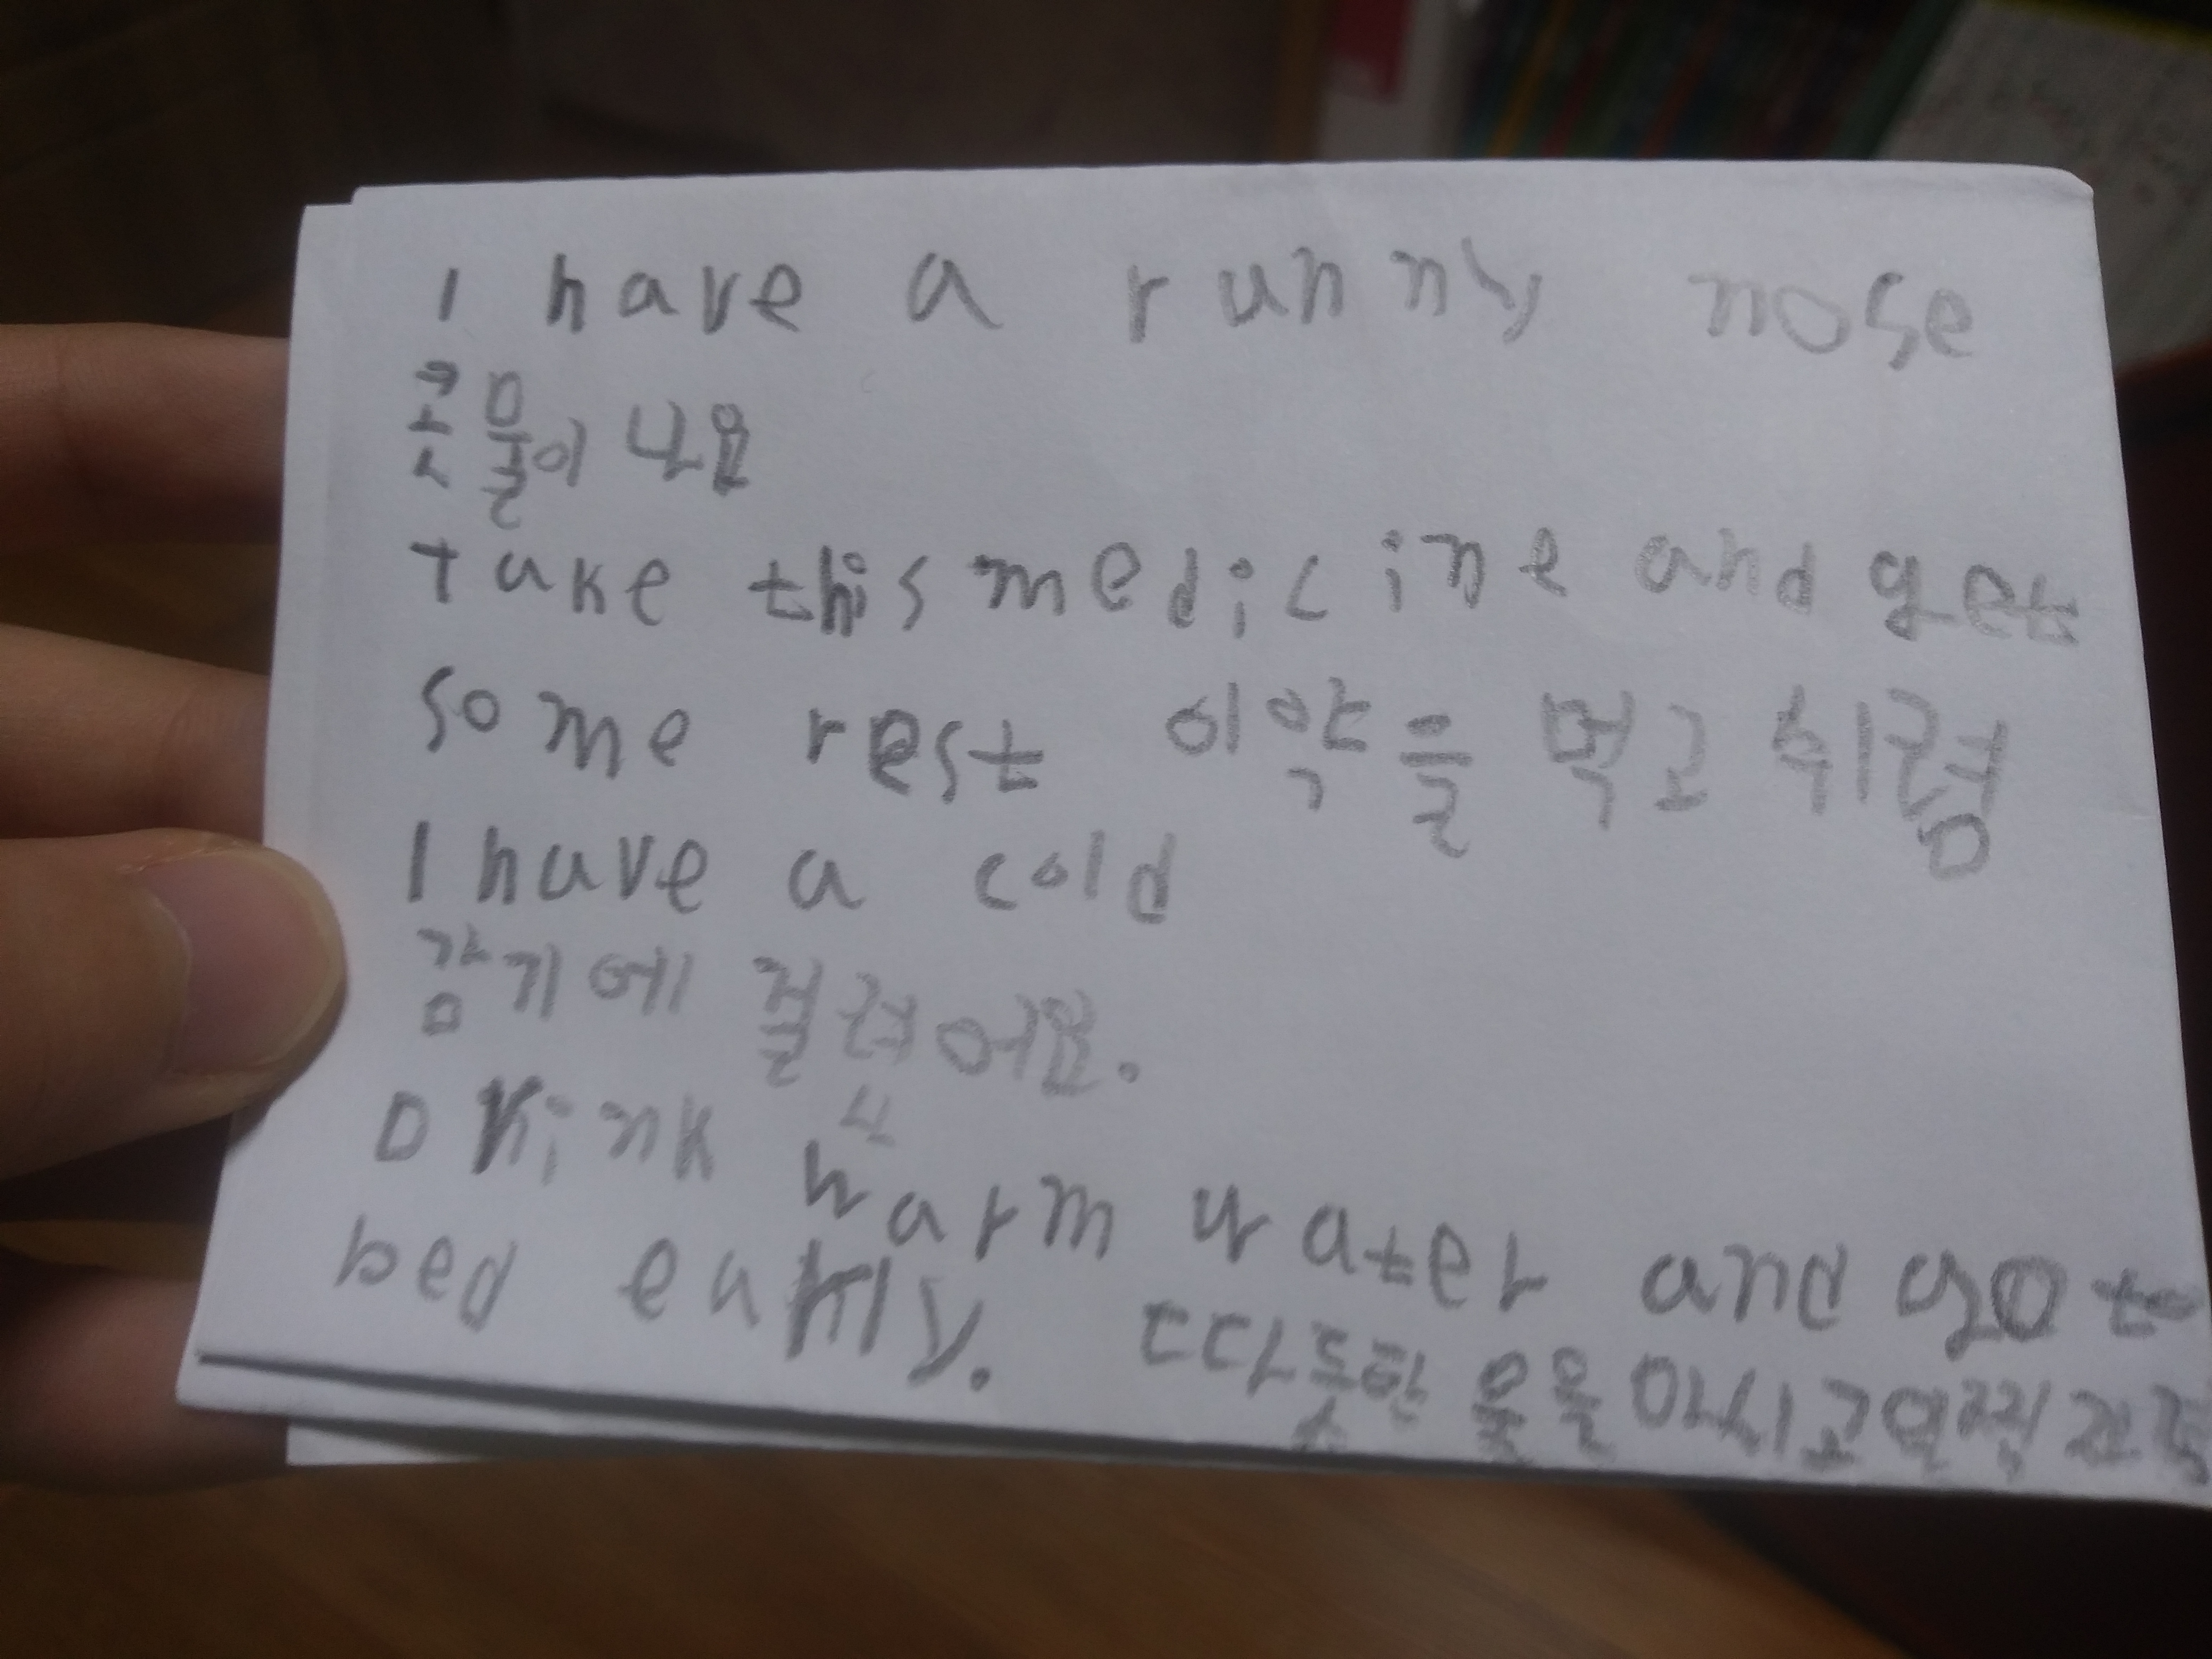 I have a runny nose
콧물이 나요
take this medicine and get
some rest 이약을 먹고 쉬렴
I have a cold
감기에 걸렸어요.
Drink warm water and go to
bed early. 따듯한 물을 마시고 일찍